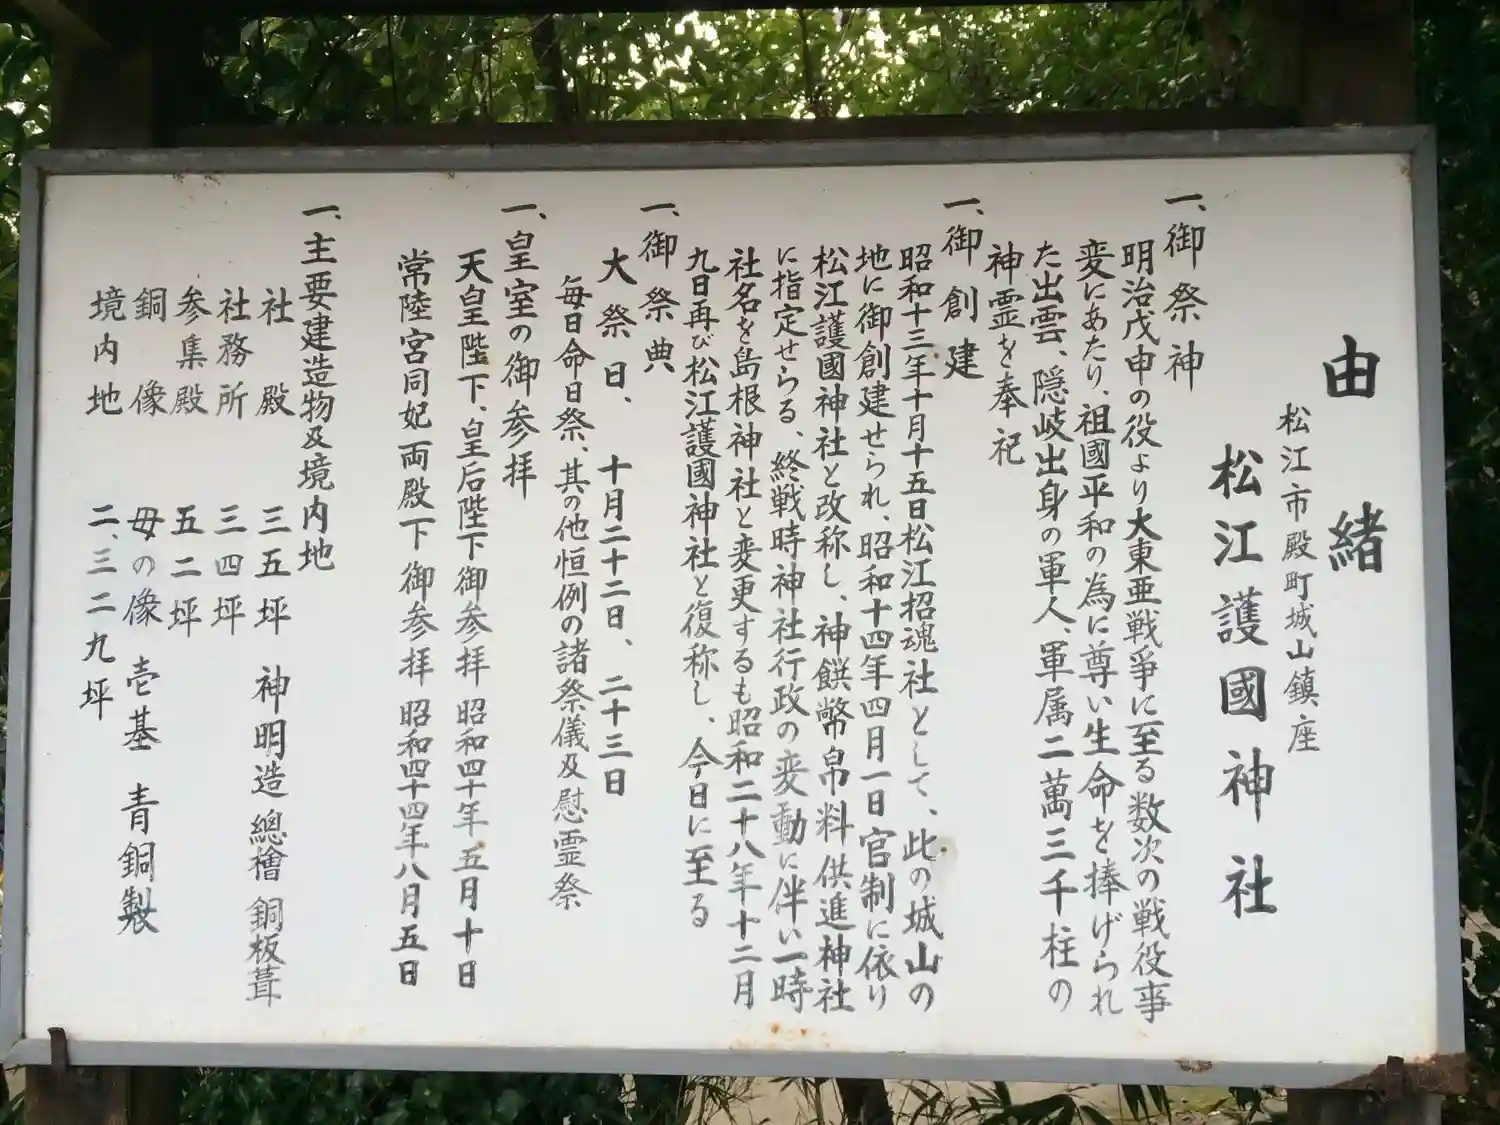 由緒
松江市殿町城山鎮座
松江護國神社
一、御祭神
明治戊申の役より大東亜戦爭に至る数次の戦役事
変にあたり、祖國平和の為に尊い生命を捧げられ
た出雲、隠岐出身の軍人、軍属二萬三千柱の
神霊を奉祀
一、御創建
昭和十三年十月十五日松江招魂社として、此の城山の
地に御創建せられ、昭和十四年四月一日官制に依り
松江護國神社と改称し、神饌幣帛料供進神社
に指定せらる、終戦時神社行政の変動に伴い一時
社名を島根神社と変更するも昭和二十八年十二月
九日再び松江護國神社と復称し、今日に至る
一、御祭典
大祭日、十月二十二日、二十三日
毎日命日祭、其の他恒例の諸祭儀及慰霊祭
一、皇室の御参拝
天皇陛下、皇后陛下御参拝 昭和四十年五月十日
常陸宮同妃両殿下御参拝 昭和四十四年八月五日
一、主要建造物及境内地
社殿 三五坪 神明造 總檜 銅板葺
社務所 三四坪
参集殿 五二坪
銅像 母の像 壱基 青銅製
境内地 二、三二九坪